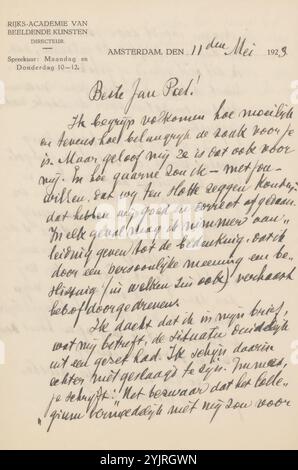 RIJKS-ACADEMIE VAN
BEELDENDE KUNSTEN
DIRECTEUR.
Spreekuur: Maandag en
Donderdag 10—12.
AMSTERDAM, DEN 11den Mei 1923
Beste Jan Poel!
Ik begrijp volkomen hoe moeilijk
en tevens hoe belangrijk de zaak voor je
is. Maar geloof mij ze is dat ook voor
mij. En hoe gaarne zou ik — met jou —
willen, dat wij ten slotte zeggen konden:
dat hebben wij goed en correct afgedaan.
In elk geval mag ik nimmer aan-
leiding geven tot de bedenking, dat ik
door een persoonlijke meening een be-
slissing (in welken zin ook) verhaast
of heb doorgedreven.
Ik dacht dat ik in mijn brief,
wat mij betreft, de situatie duidelijk
uit een gezet had. Ik schijn daarin
echter niet geslaagd te zijn. Immers,
je schrijft: "Het bezwaar dat het Colle-
"gium vermoedelijk met mij zou voor
alamy
Image ID: 2YJRGWN
www.alamy.com